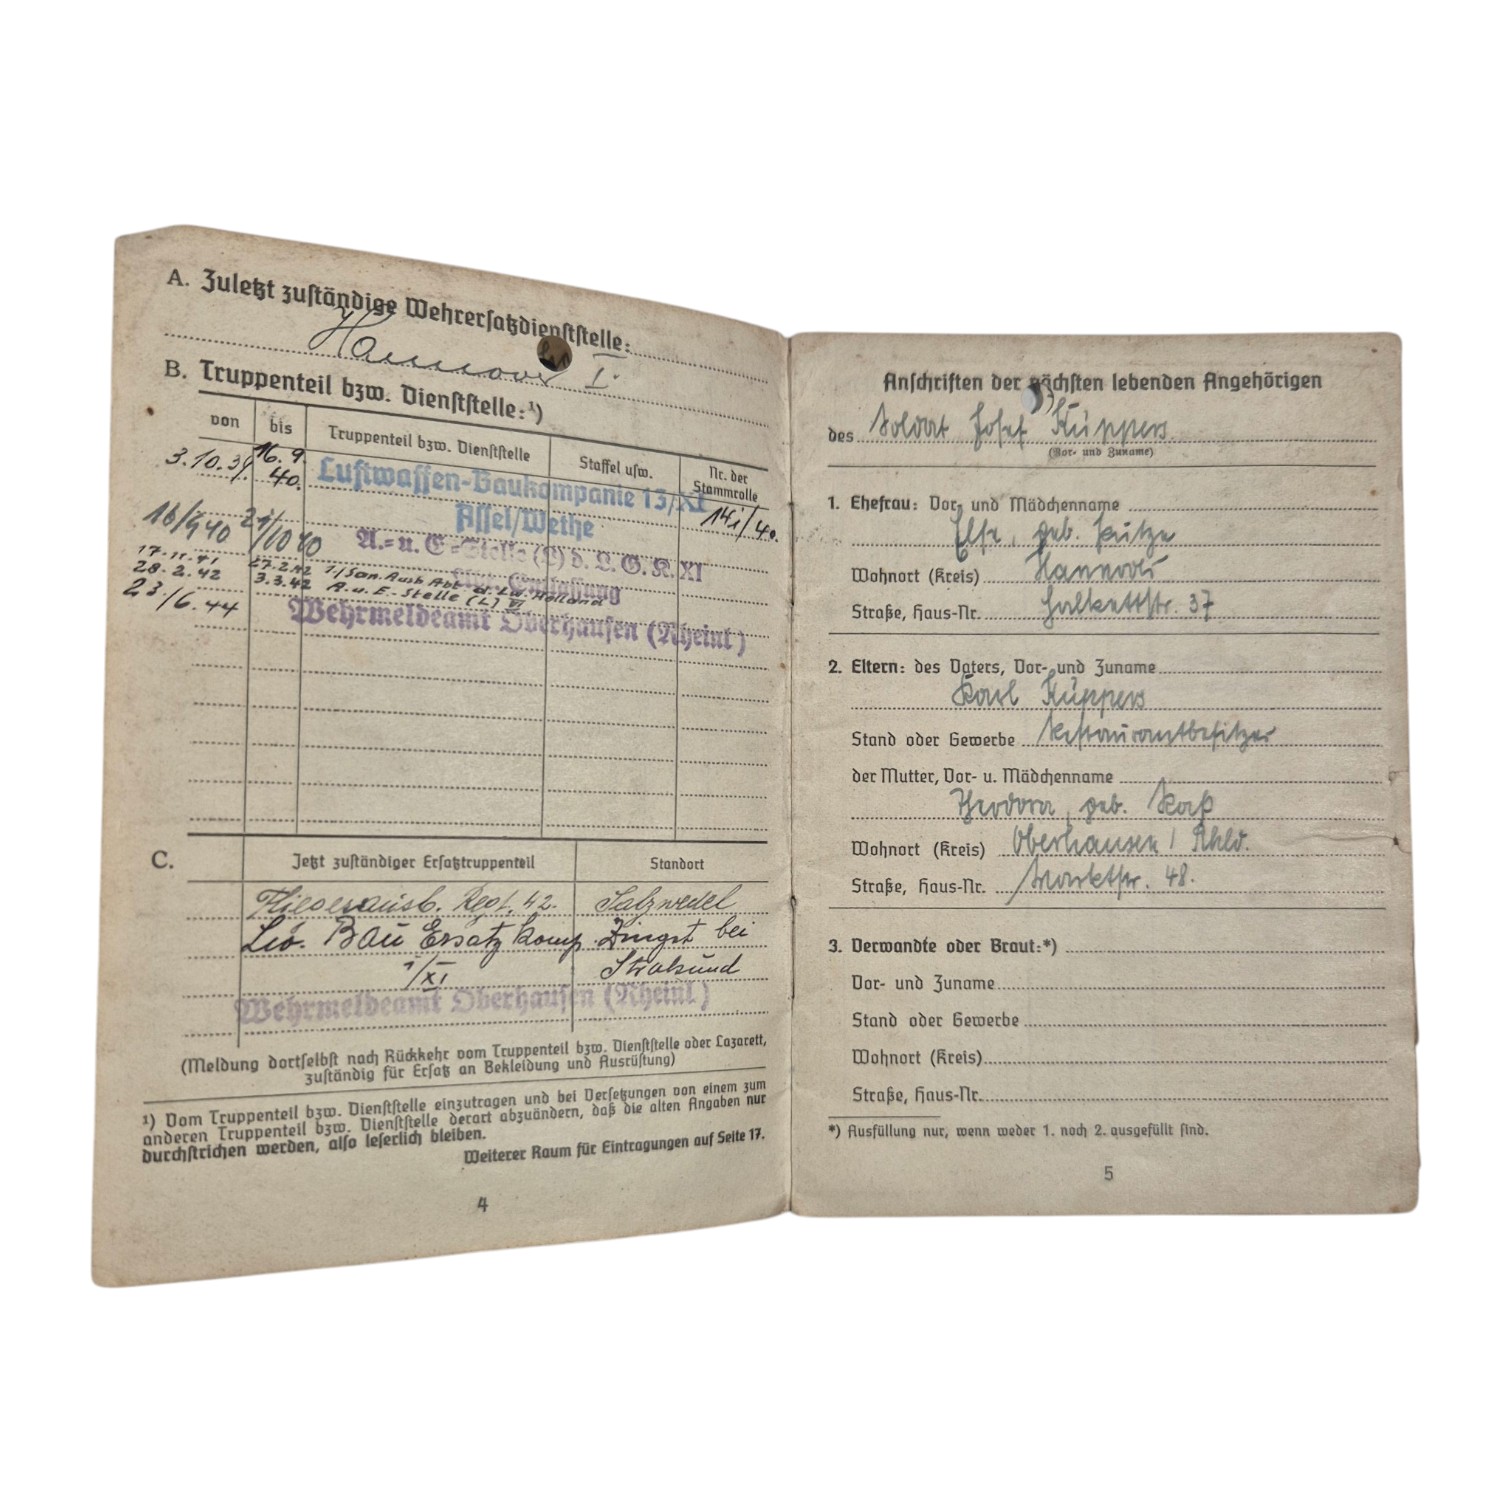 A. Zuletzt zuständige Wehrersatzdienststelle:
Hannover I.
B. Truppenteil bzw. Dienststelle:¹)
von bis Truppenteil bzw. Dienststelle Staffel usw. Nr. der Stammrolle
3.10.39. 16.9.40. Luftwaffen-Baukompanie 13/XI
Assel/Wethe 141/40.
16/9 40 21/10 40 A.- u. E.-Stelle (L) d. L. G. K. XI
Entlassung
17.11.41 27.2.42 1./San. Ausb. Abt. d. Lw. Holland
28.2.42 3.3.42 A. u. E.-Stelle (L) VI
23./6.44 Wehrmeldeamt Oberhausen (Rheinl.)
C. Jetzt zuständiger Ersatztruppenteil Standort
Fliegerausb. Regt. 42. Salzwedel
Lw. Bau Ersatz Komp. Zingst bei
1/XI Stralsund
Wehrmeldeamt Oberhausen (Rheinl.)
(Meldung dortselbst nach Rückkehr vom Truppenteil bzw. Dienststelle oder Lazarett,
zuständig für Ersatz an Bekleidung und Ausrüstung)
¹) Vom Truppenteil bzw. Dienststelle einzutragen und bei Versetzungen von einem zum
anderen Truppenteil bzw. Dienststelle derart abzuändern, daß die alten Angaben nur
durchstrichen werden, also leserlich bleiben.
Weiterer Raum für Eintragungen auf Seite 17.
4
Anschriften der nächsten lebenden Angehörigen
des Soldat Josef Küppers
(Vor- und Zuname)
1. Ehefrau: Vor- und Mädchenname
Else, geb. Kutze
Wohnort (Kreis) Hannover
Straße, Haus-Nr. Halkettstr. 37
2. Eltern: des Vaters, Vor- und Zuname
Karl Küppers
Stand oder Gewerbe Restaurantbesitzer
der Mutter, Vor- u. Mädchenname
Theodora, geb. Kaß
Wohnort (Kreis) Oberhausen / Rhld.
Straße, Haus-Nr. Marktstr. 48.
3. Verwandte oder Braut:*)
Vor- und Zuname
Stand oder Gewerbe
Wohnort (Kreis)
Straße, Haus-Nr.
*) Ausfüllung nur, wenn weder 1. noch 2. ausgefüllt sind.
5